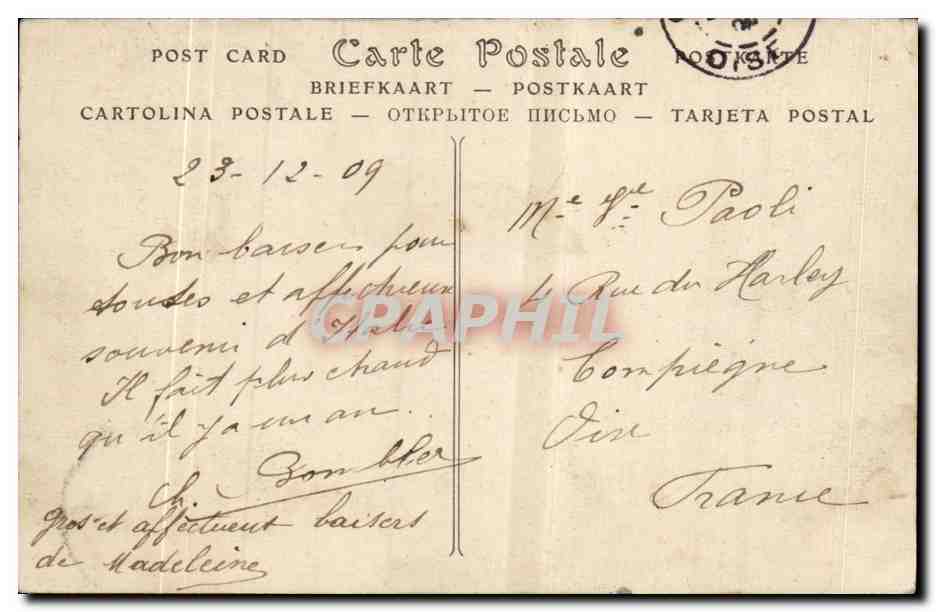 POST CARD Carte Postale POSTKARTE
BRIEFKAART — POSTKAART
CARTOLINA POSTALE — ОТКРЫТОЕ ПИСЬМО — TARJETA POSTAL
OISE
23-12-09
Bon baisers pour
toutes et affectueux
souvenir d'Italie
Il fait plus chaud
qu'il y a un an..
Ch.
gros et affectuent baisers
de Madeleine
Me Vve Paoli
4 Rue du Harley
Compiègne
Oise
France
CPAPHIL